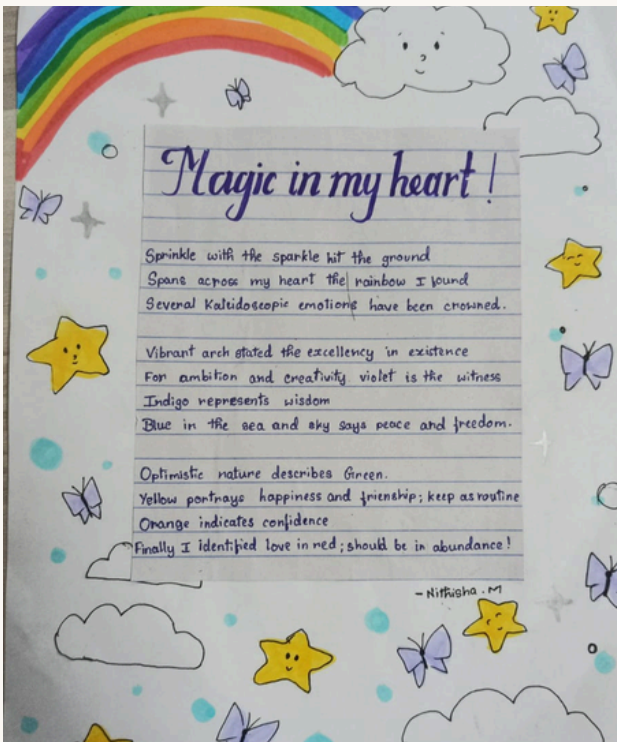 Magic in my heart!
Sprinkle with the sparkle hit the ground
Spans across my heart the rainbow I found
Several Kaleidoscopic emotions have been crowned.
Vibrant arch stated the excellency in existence
For ambition and creativity violet is the witness
Indigo represents wisdom
Blue in the sea and sky says peace and freedom.
Optimistic nature describes Green.
Yellow portrays happiness and frienship; keep as routine
Orange indicates confidence
Finally I identified love in red; should be in abundance!
- Nithisha . M